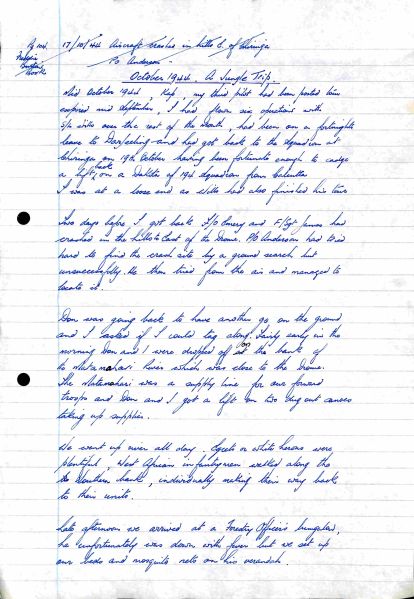 Pg 104
17/10/44 Aircraft crashed in hills E. of Chiringa
Po Anderson -
October 1944. A Jungle Trip.
Mid October 1944, Kep, my third pilot had been posted time
expired mid September, I had flown six operations with
over the rest of the month, had been on a fortnights
leave to Darjeeling and had got back to the squadron at
Chiringa on 19th October having been fortunate enough to cadge
a lift back on a Dakota of 194 squadron from Calcutta
I was at a loose end as Wills had also finished his tour
Two days before I got back F/O Emery and F/Sgt James had
crashed in the hills to East of the Drome. P/O Anderson had tried
hard to find the crash site by a ground search but
unsuccessfully. He then tried from the air and managed to
locate it.
Don was going back to have another go on the ground
and I asked if I could tag along. Fairly early in the
morning Don and I were dropped off on the bank of
the Matamahari River which was close to the Drome.
The Matamahari was a supply line for our forward
troops and Don and I got a lift on two dug out canoes
taking up supplies.
We went up river all day - Egrets or white herons were
plentiful, West African infantrymen walked along the
southern bank, individually making their way back
to their units.
Late afternoon we arrived at a Forestry Officers bungalow,
he unfortunately was down with fever but we set up
our beds and mosquito nets on his verandah.